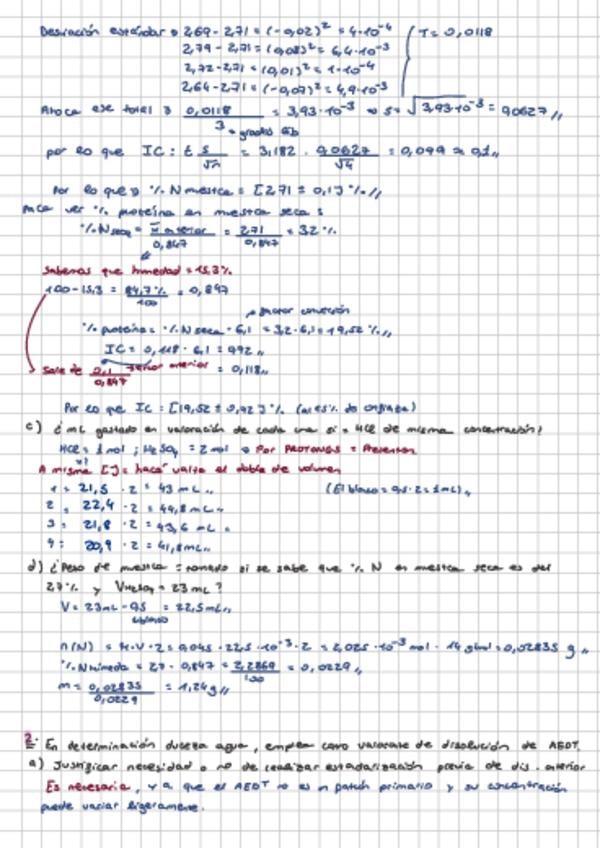 Desviación estándar → 2,69 - 2,71 = (-0,02)² = 4·10⁻⁴
2,79 - 2,71 = (0,08)² = 6,4·10⁻³
2,72 - 2,71 = (0,01)² = 1·10⁻⁴
2,64 - 2,71 = (-0,07)² = 4,9·10⁻³
T = 0,0118
Ahora ese total → 0,0118 / 3 = 3,93·10⁻³ → s = √3,93·10⁻³ = 0,0627 //
3 → grados lib
por lo que IC: t s/√n = 3,182 · 0,0627/√4 = 0,099 ≈ 0,1 //
Por lo que → % N muestra = [2,71 ± 0,1] % //
Para ver % proteína en muestra seca:
% N seca = x̄ anterior / 0,847 = 2,71 / 0,847 = 3,2 %
Sabemos que humedad = 15,3 %
100 - 15,3 = 84,7 % / 100 = 0,847
→ factor conversión
% proteína = % N seca · 6,1 = 3,2 · 6,1 = 19,52 % //
IC = 0,118 · 6,1 = 0,72 //
Sale de 0,1 / 0,847 = 0,118 //
Por lo que IC: [19,52 ± 0,72] % (al 95% de confianza)
c) ¿mL gastado en valoración de cada una si = HCl de misma concentración?
HCl = 1 mol ; H₂SO₄ = 2 mol → Por PROTONES =
A misma [ ] = hará falta el doble de volumen
1 = 21,5 · 2 = 43 mL //
(El blanco = 0,5 · 2 = 1 mL) //
2 = 22,4 · 2 = 44,8 mL //
3 = 21,8 · 2 = 43,6 mL //
4 = 20,9 · 2 = 41,8 mL //
d) ¿Peso de muestra tomado si se sabe que % N en muestra seca es del
2,7 % y V H₂SO₄ = 23 mL?
V = 23 mL - 0,5 = 22,5 mL //
blanco
n(N) = M · V · 2 = 0,045 · 22,5 · 10⁻³ · 2 = 2,025 · 10⁻³ mol · 14 g/mol = 0,02835 g //
% N húmeda = 2,7 · 0,847 = 2,2869 / 100 = 0,0229 //
m = 0,02835 / 0,0229 = 1,24 g //
2. En determinación dureza agua, emplea como valorante de disolución de AEDT.
a) Justificar necesidad o no de realizar estandarización previa de dis. anterior
Es necesaria, ya que el AEDT no es n patrón primario y su concentración
puede variar ligeramente.